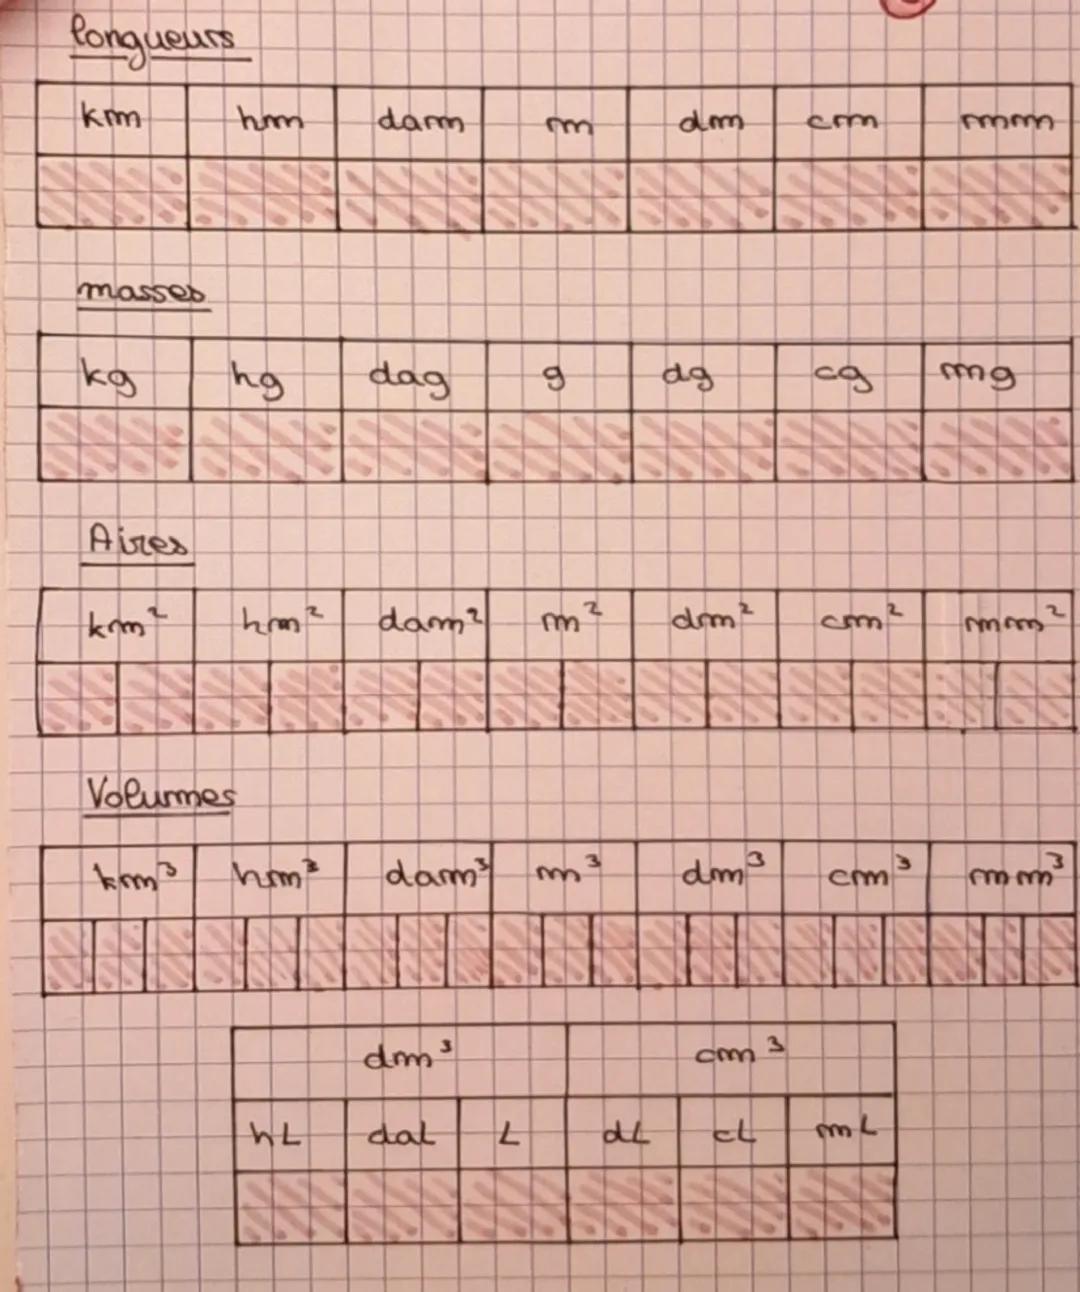 longueurs
km hm dam m dm cm mm
masses
kg hg dag g dg cg mg
Aires
km² hm² dam² m² dm² cm² mm²
Volumes
km³ hm³ dam³ m³ dm³ cm³ mm³
dm³ cm³
hL daL L dL cL mL